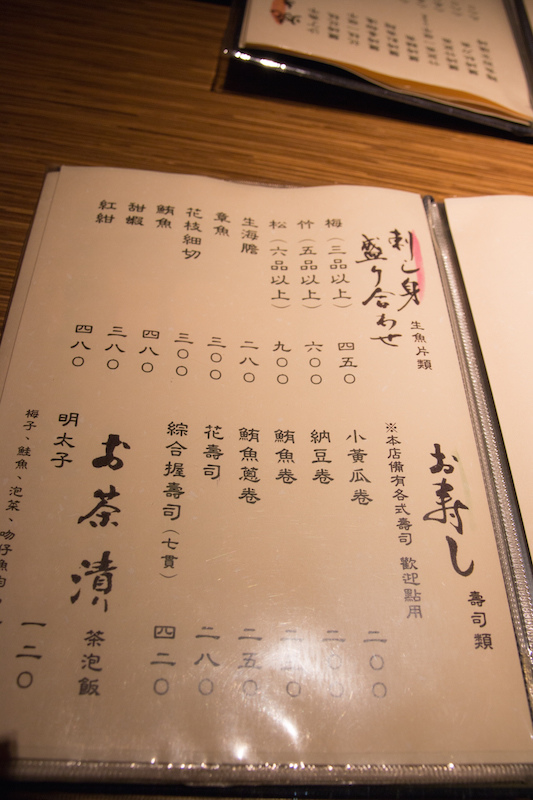 刺し身
盛り合わせ 生魚片類
梅（三品以上） 四五〇
竹（五品以上） 六〇〇
松（六品以上） 九〇〇
生海膽 二八〇
章魚 三〇〇
花枝細切 三〇〇
鮪魚 四八〇
甜蝦 三八〇
紅紺 四八〇
お寿し 壽司類
※本店備有各式壽司 歡迎點用
小黃瓜卷 二〇〇
納豆卷 二〇〇
鮪魚卷
鮪魚蔥卷 二五〇
花壽司 二八〇
綜合握壽司（七貫） 四二〇
お茶漬 茶泡飯
明太子 一二〇
梅子、鮭魚、泡菜、吻仔魚